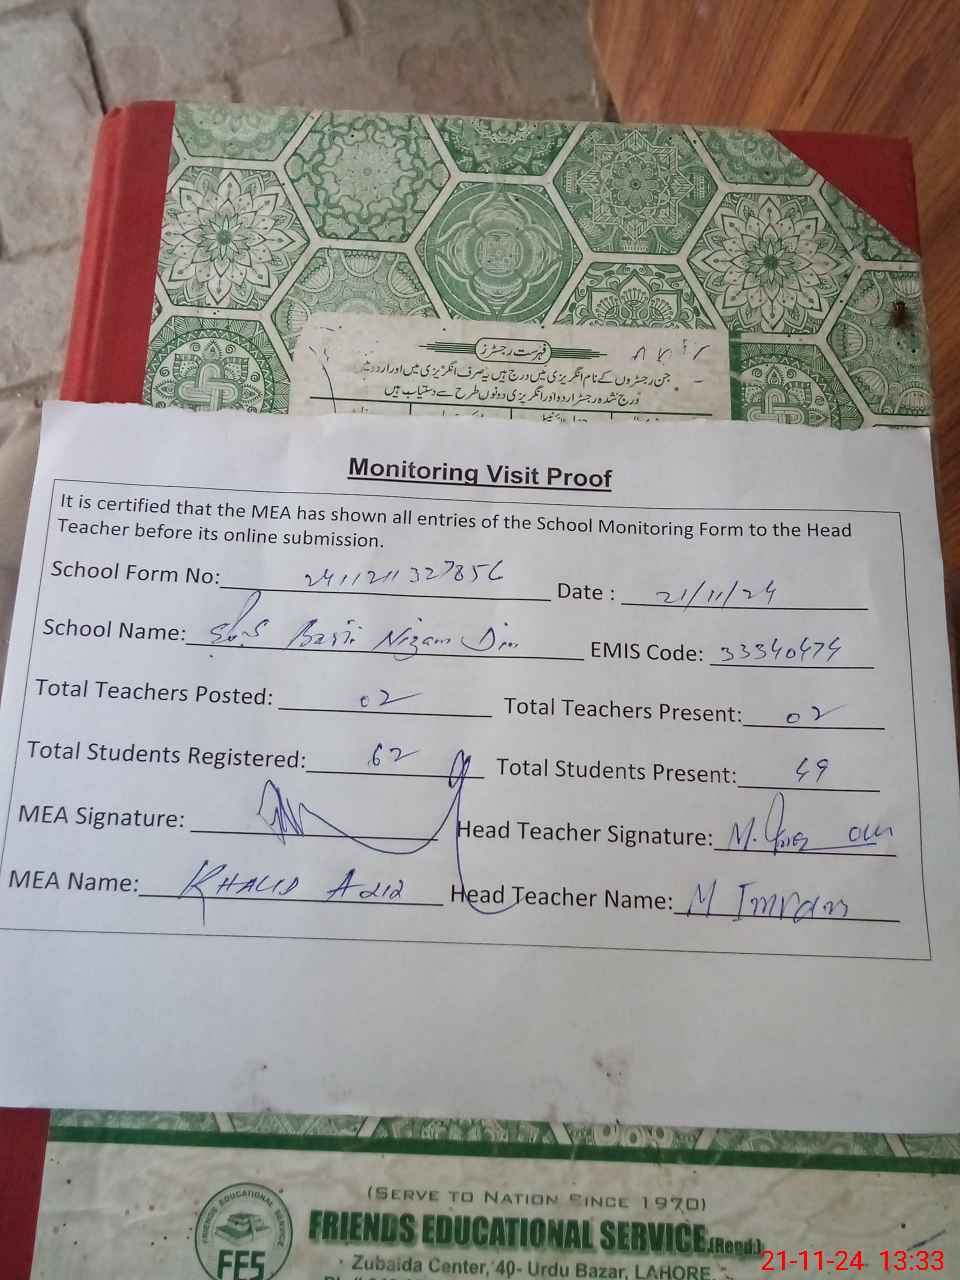 فہرست رجسٹرز
جن رجسٹروں کے نام انگریزی میں درج ہیں یہ صرف انگریزی میں اور اردو میں
درج شدہ رجسٹر اردو اور انگریزی دونوں طرح سے دستیاب ہیں
Monitoring Visit Proof
It is certified that the MEA has shown all entries of the School Monitoring Form to the Head
Teacher before its online submission.
School Form No: 2411211327856 Date : 21/11/24
School Name: Basti Nizam Din EMIS Code: 33340474
Total Teachers Posted: 02 Total Teachers Present: 02
Total Students Registered: 62 Total Students Present: 49
MEA Signature: Head Teacher Signature:
MEA Name: KHALID Head Teacher Name: M Imran
(SERVE TO NATION SINCE 1970)
FRIENDS EDUCATIONAL SERVICE (Regd.)
Zubaida Center, 40- Urdu Bazar, LAHORE
FRIENDS EDUCATIONAL SERVICE
FES
21-11-24 13:33